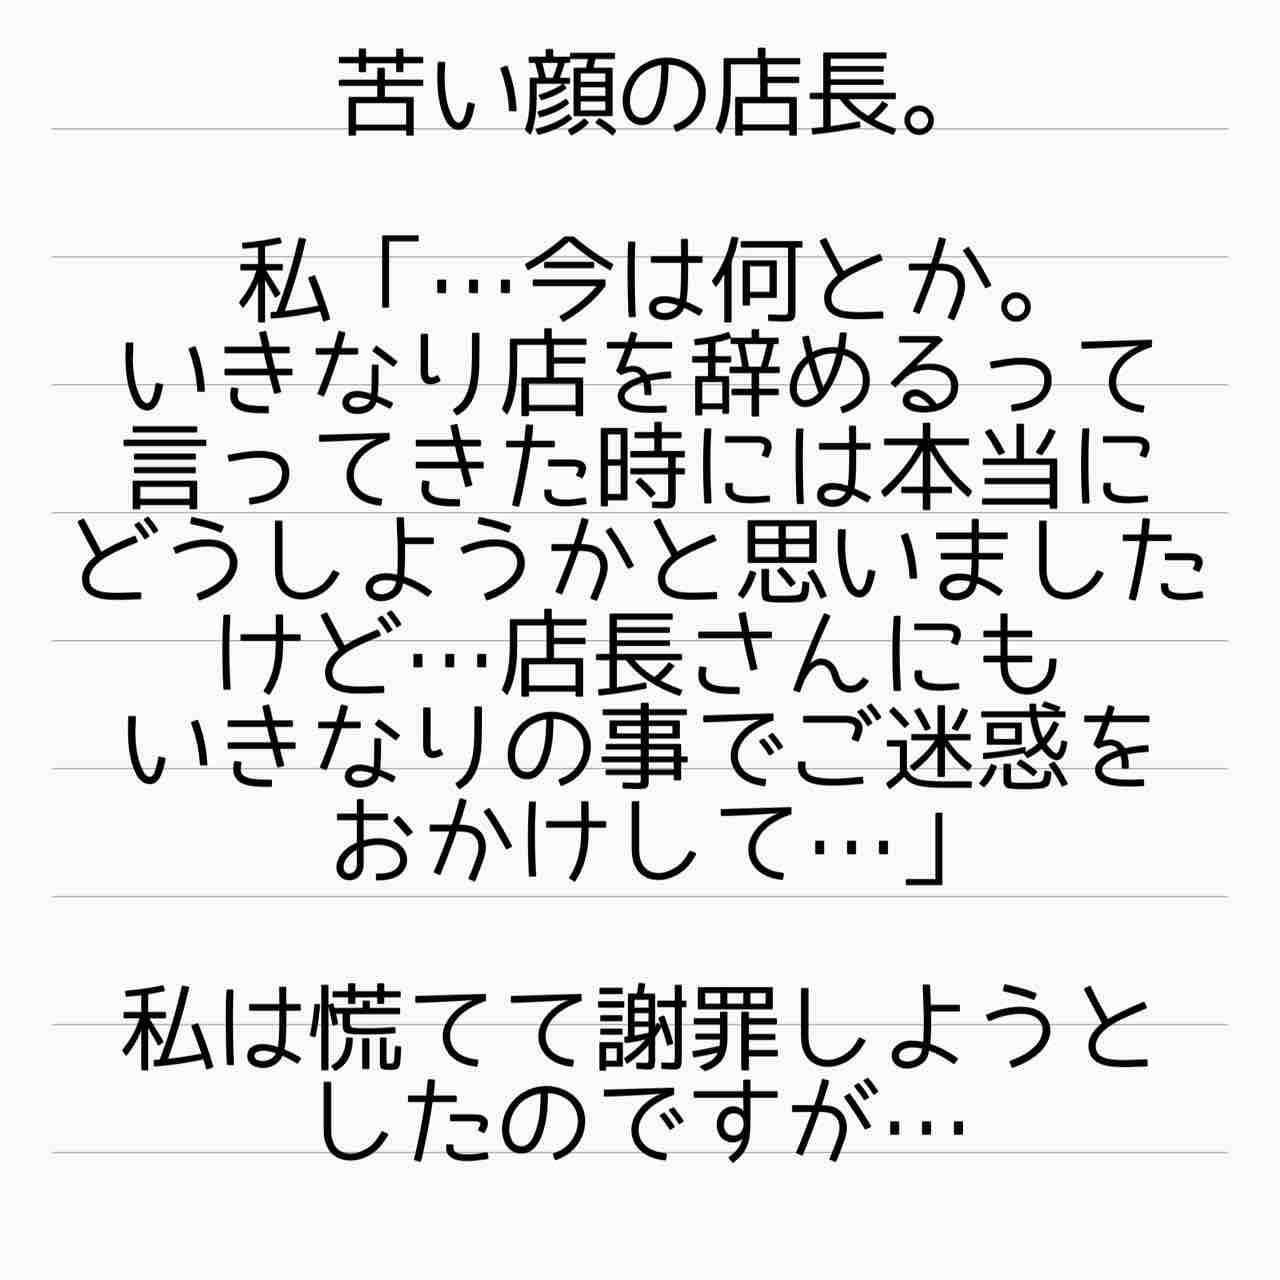 苦い顔の店長。
私「…今は何とか。
いきなり店を辞めるって
言ってきた時には本当に
どうしようかと思いました
けど…店長さんにも
いきなりの事でご迷惑を
おかけして…」
私は慌てて謝罪しようと
したのですが…